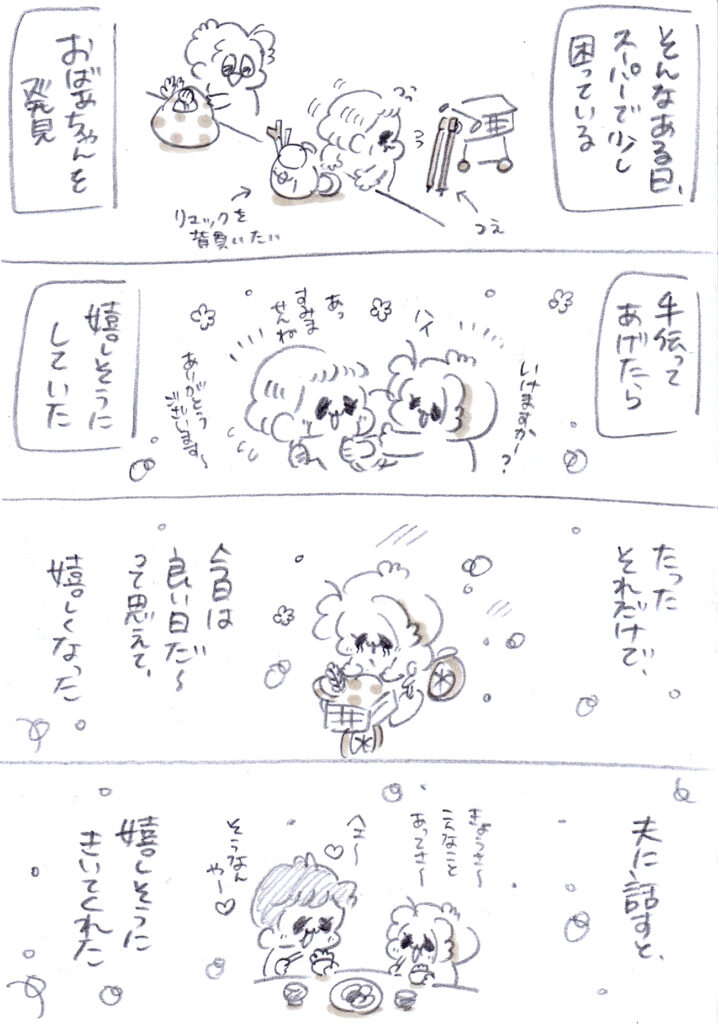 そんなある日、
スーパーで少し
困っている
つえ
リュックを
背負いたい
おばあちゃんを
発見
手伝って
あげたら
いけますかー?
ハイ
あっ
すみま
せんね
ありがとう
ございます〜
嬉しそうに
していた
たった
それだけで、
今日は
良い日だ〜
って思えて、
嬉しくなった
夫に話すと、
きょうさ〜
こんなこと
あってさ〜
へえ〜
そうなん
やー♡
嬉しそうに
きいてくれた